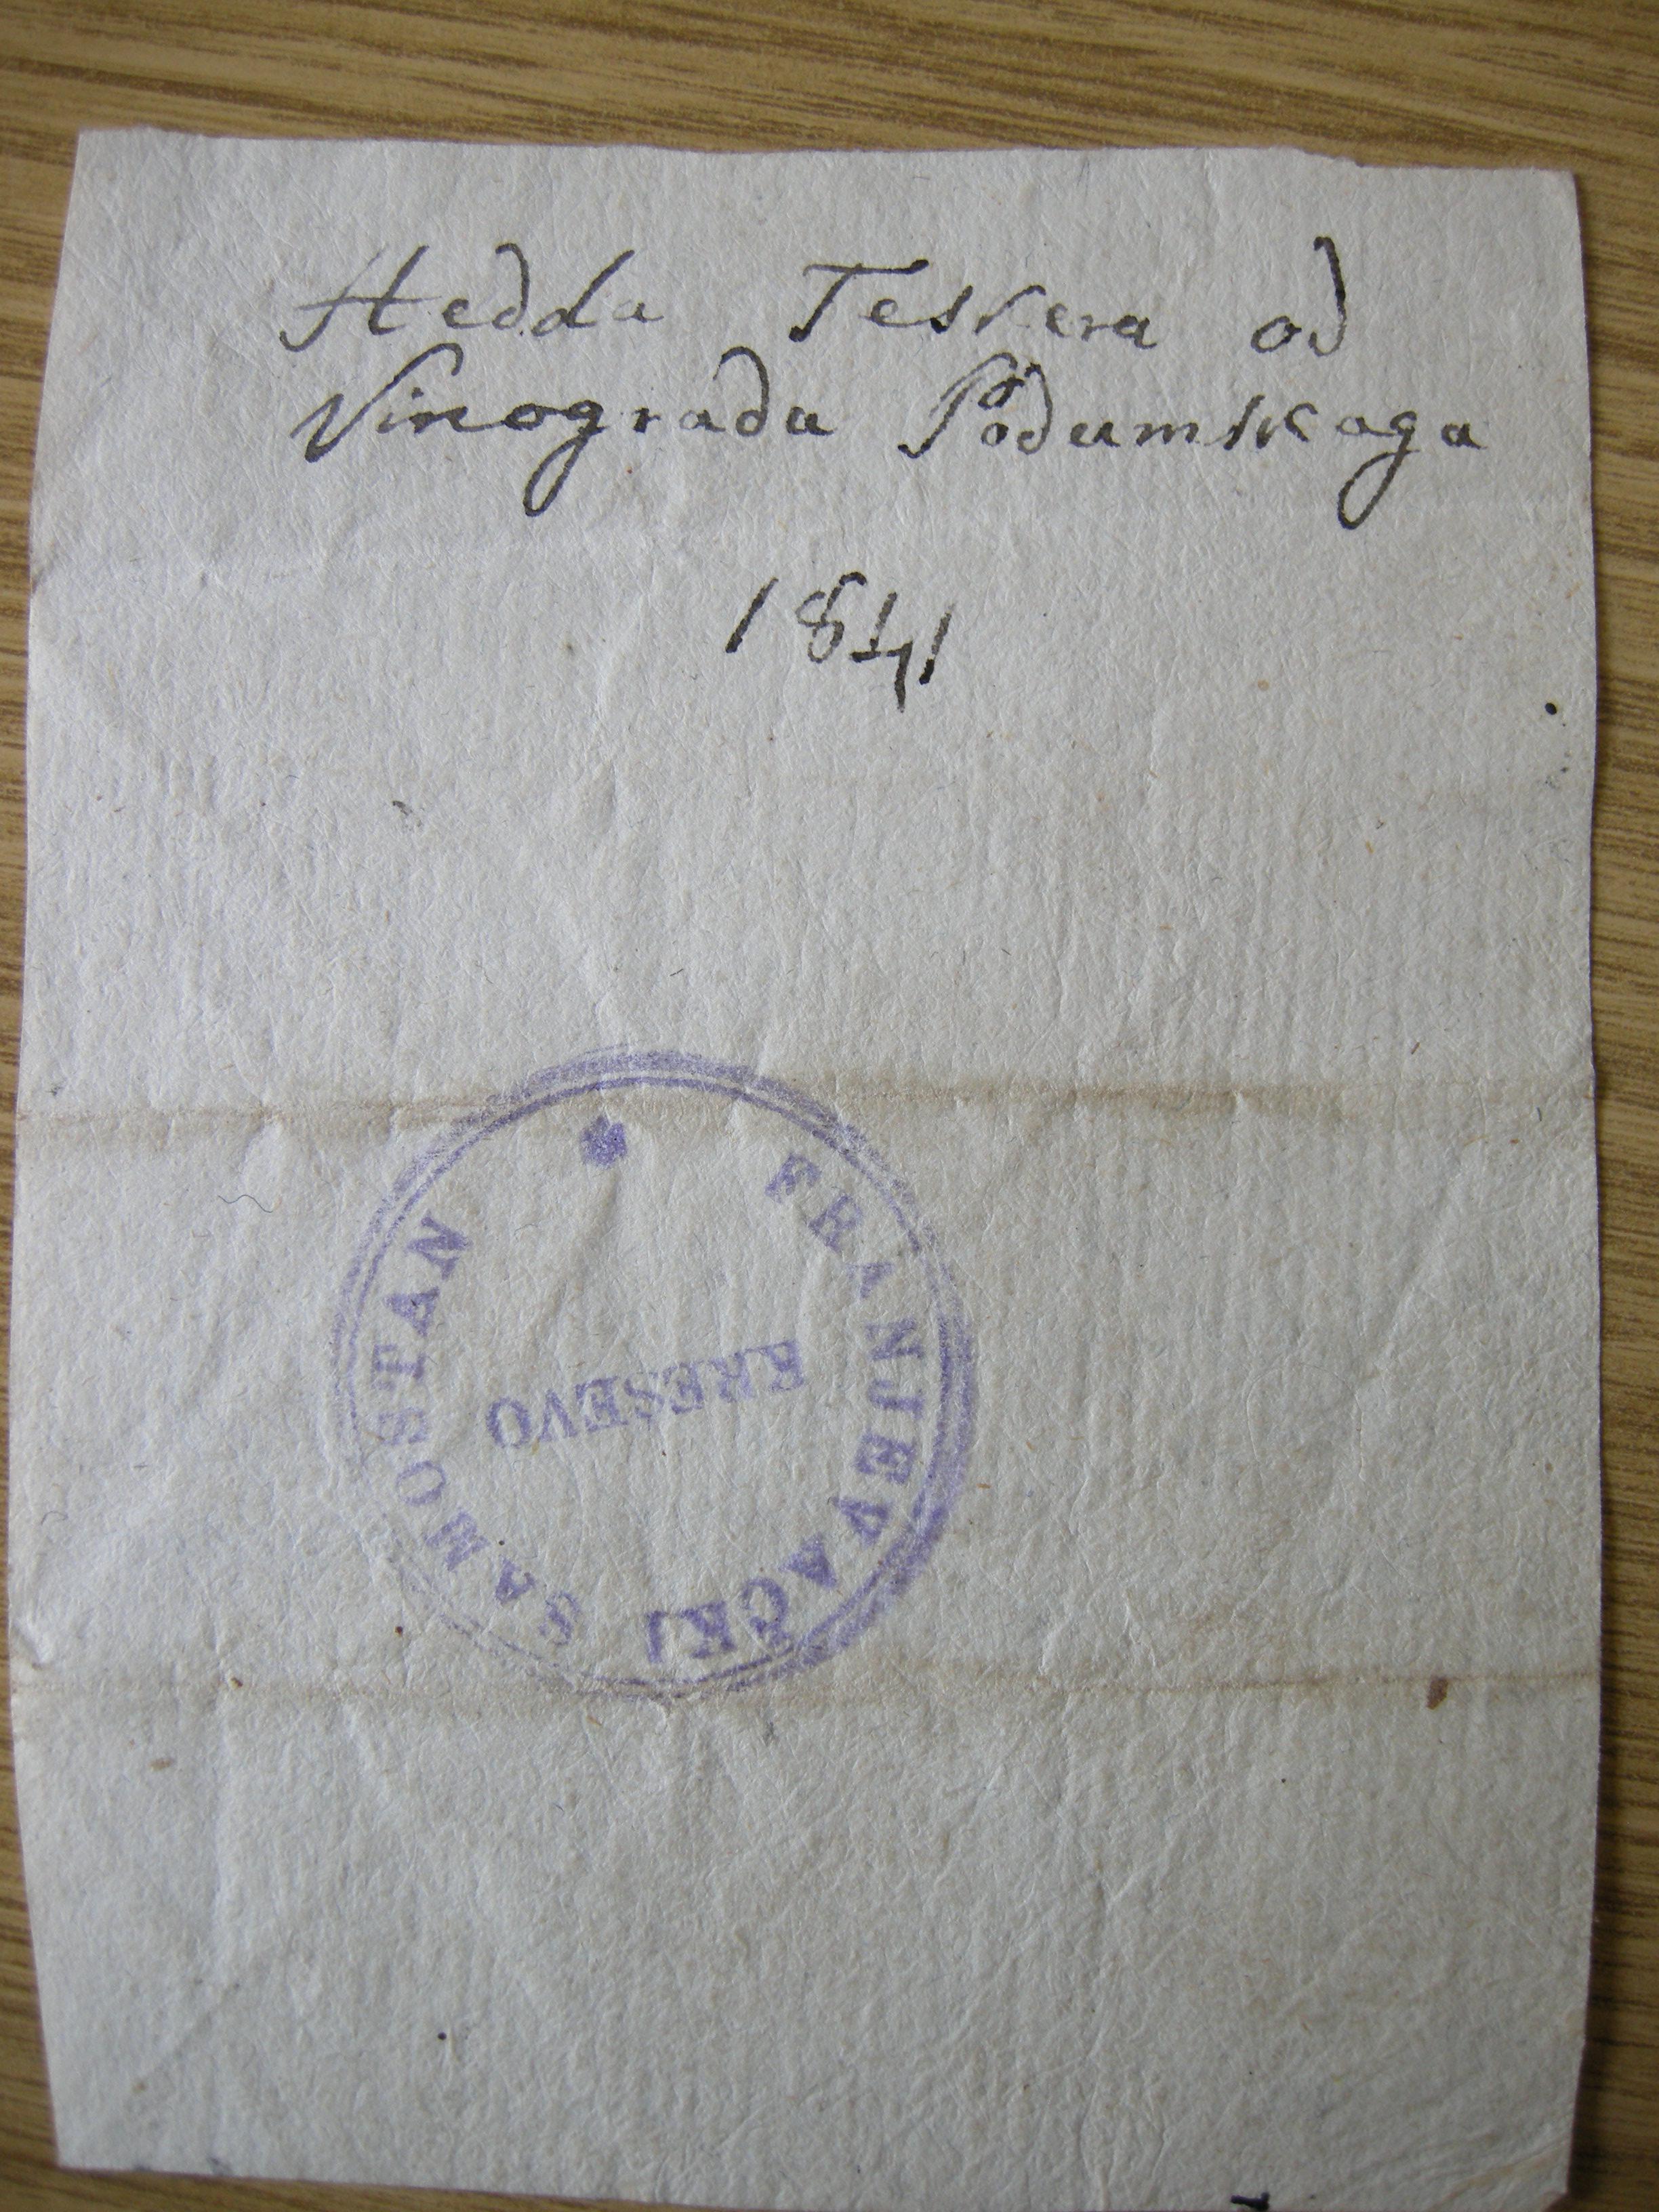 Hedda Teskera od
Vinograda Podumskaga
1841
FRANJEVAČKI SAMOSTAN
KREŠEVO